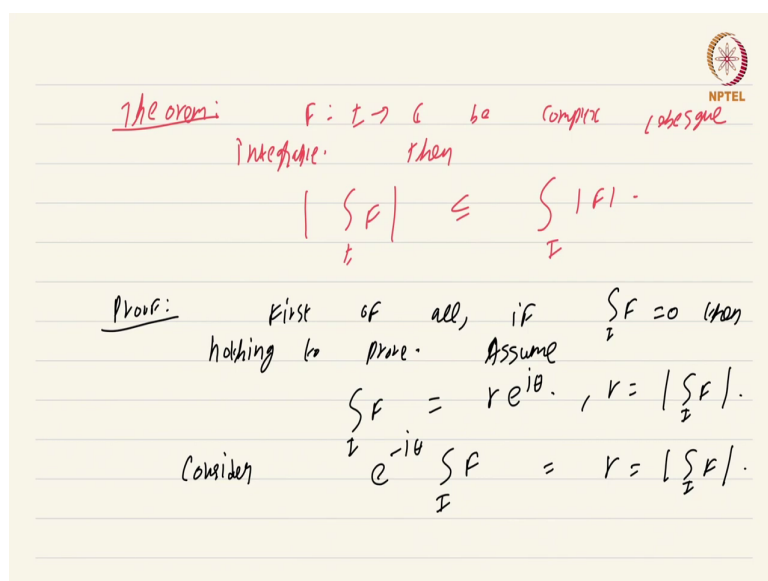 NPTEL
Theorem: F : I → ℂ be complex Lebesgue
integrable. then
| ∫_I F | ≤ ∫_I |F| .
Proof: First of all, if ∫_I F = 0 then
nothing to prove. Assume
∫_I F = re^{iθ}. , r = | ∫_I F | .
Consider e^{-iθ} ∫_I F = r = | ∫_I F | .